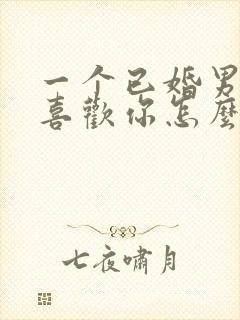 一个已婚男
喜歡你怎麼
七夜嘯月